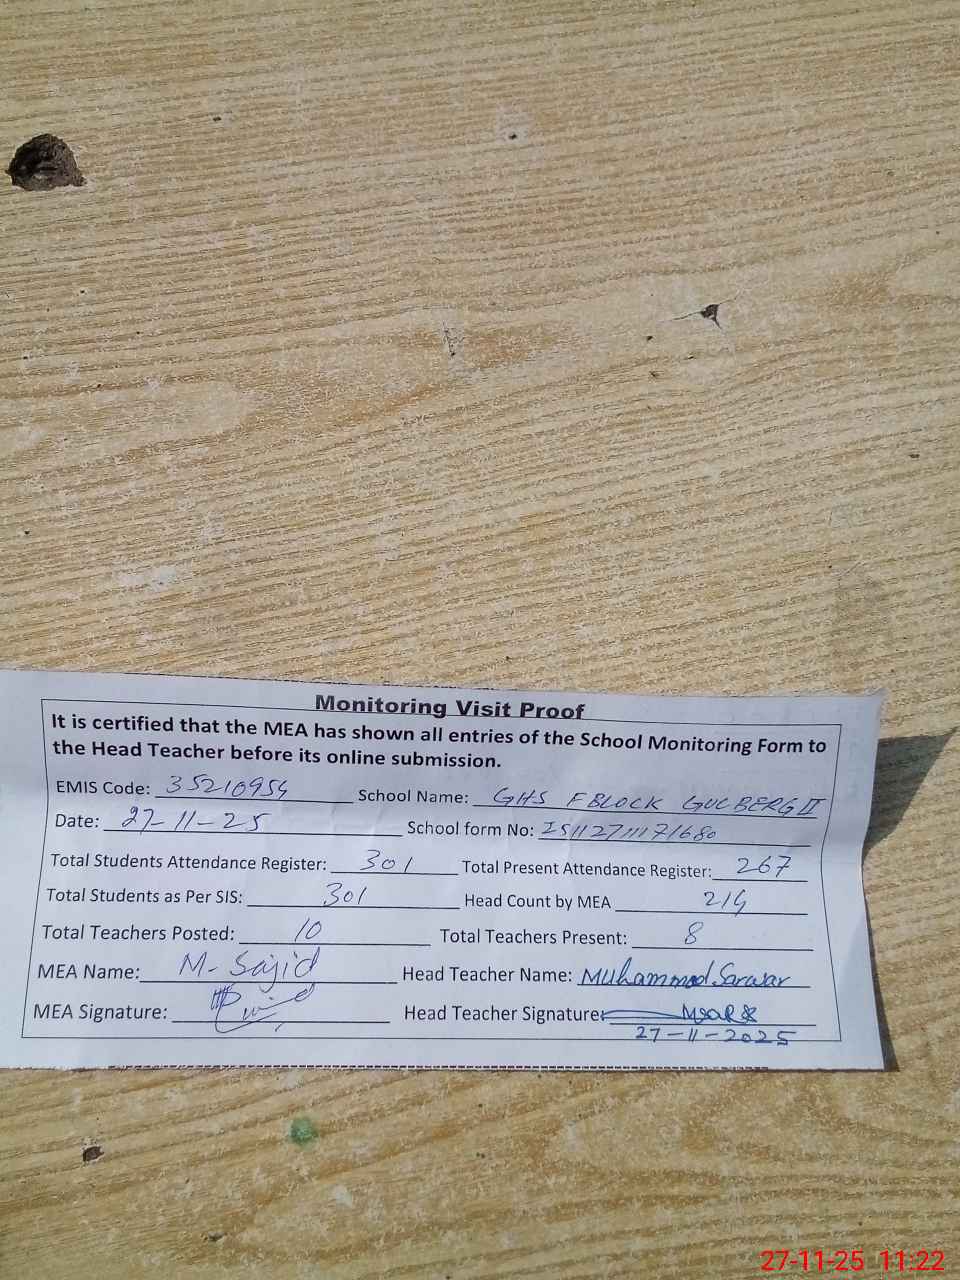 Monitoring Visit Proof
It is certified that the MEA has shown all entries of the School Monitoring Form to
the Head Teacher before its online submission.
EMIS Code: 35210954 School Name: GHS F BLOCK GULBERG II
Date: 27-11-25 School form No:
Total Students Attendance Register: 301 Total Present Attendance Register: 267
Total Students as Per SIS: 301 Head Count by MEA 214
Total Teachers Posted: 10 Total Teachers Present: 8
MEA Name: M. Sajid Head Teacher Name: Muhammad Sarwar
MEA Signature: Head Teacher Signature:
27-11-2025
27-11-25 11:22